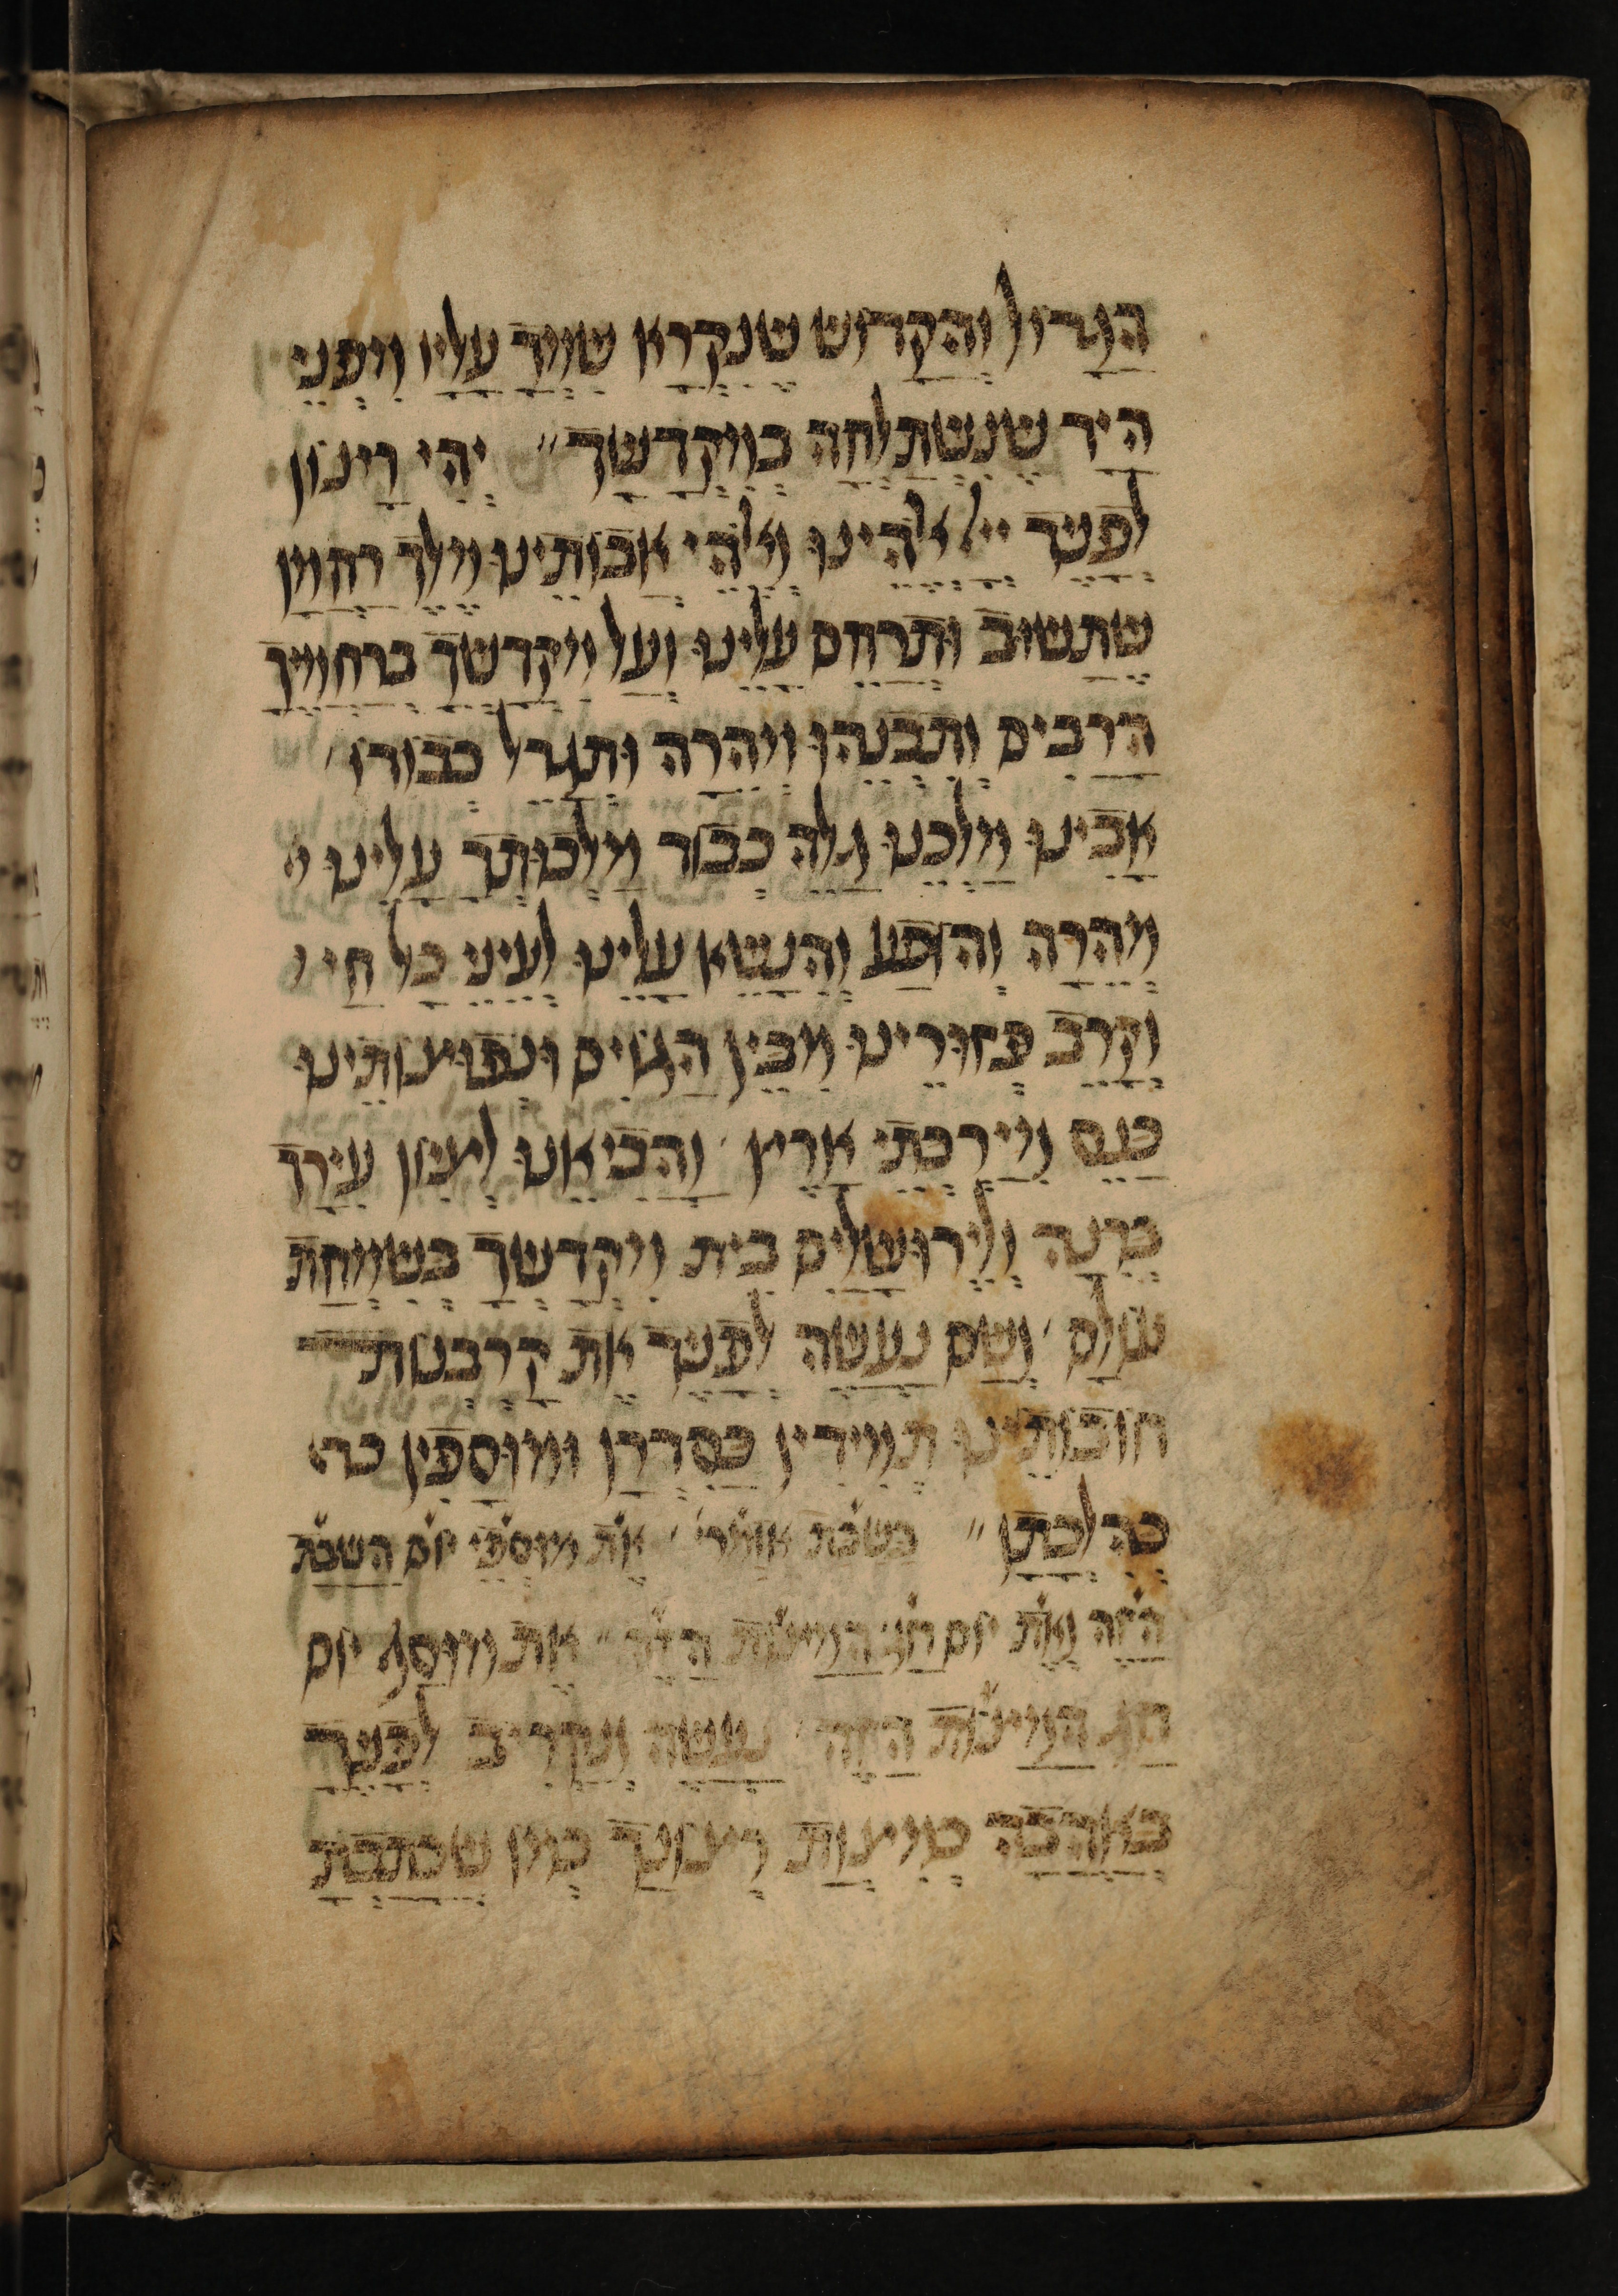 הַגָדוֹל וְהַקָדוֹשׁ שֶׁנִקְרָא שִׁמְךָ עָלָיו מִפְּנֵי
הַיָד שֶׁנִשְׁתַלְחָה בְמִקְדָשֶׁךָ״ יְהִי רָצוֹן
לְפָנֶיךָ ייי אלהינוּ וֵאלהֵי אֲבוֹתֵינוּ מֶלֶךְ רַחֲמָן
שֶׁתָשׁוּב וּתְרַחֵם עָלֵינוּ וְעַל מִקְדָשְׁךָ בְרַחֲמֶיךָ
הָרַבִּים וְתִבְנֵהוּ מְהֵרָה וּתְגַדֵל כְּבוֹדוֹ׳
אָבִינוּ מַלְכֵנוּ גַלֵה כְבוֹד מַלְכוּתְךָ עָלֵינוּ
מְהֵרָה וְהוֹפַע וְהִנָשֵׂא עָלֵינוּ לְעֵינֵי כָל חַי
וְקָרֵב פְּזוּרֵינוּ מִבֵּין הַגוֹיִם וּנְפוּצוֹתֵינוּ
כַּנֵס מִיַרְכְּתֵי אָרֶץ׳ וַהֲבִיאֵנוּ לְצִיוֹן עִירָךְ
בְּרִנָה וְלִירוּשָׁלַיִם בֵּית מִקְדָשְׁךָ בְּשִׂמְחַת
עוֹלָם׳ וְשָׁם נַעֲשֶׂה לְפָנֶיךָ אֶת קָרְבְּנוֹת
חוֹבוֹתֵינוּ תְּמִידִין כְּסִדְרָן וּמוּסָפִין כה
כְּהִלְכָתָן״ בשבת אומר׳ אֶת מוּסְפֵי יוֹם הַשַבָּת
הַזֶה וְאֶת יוֹם חַג הַמַצּוֹת הַזֶה״ אֶת מוּסַף יוֹם
חַג הַמַצּוֹת הַזֶה׳ נַעֲשֶׂה וְנַקְרִיב לְפָנֶיךָ
בְּאַהֲבָה כְמִצְוַת רְצוֹנָךְ כְּמוֹ שֶׁכָתַבְתָ